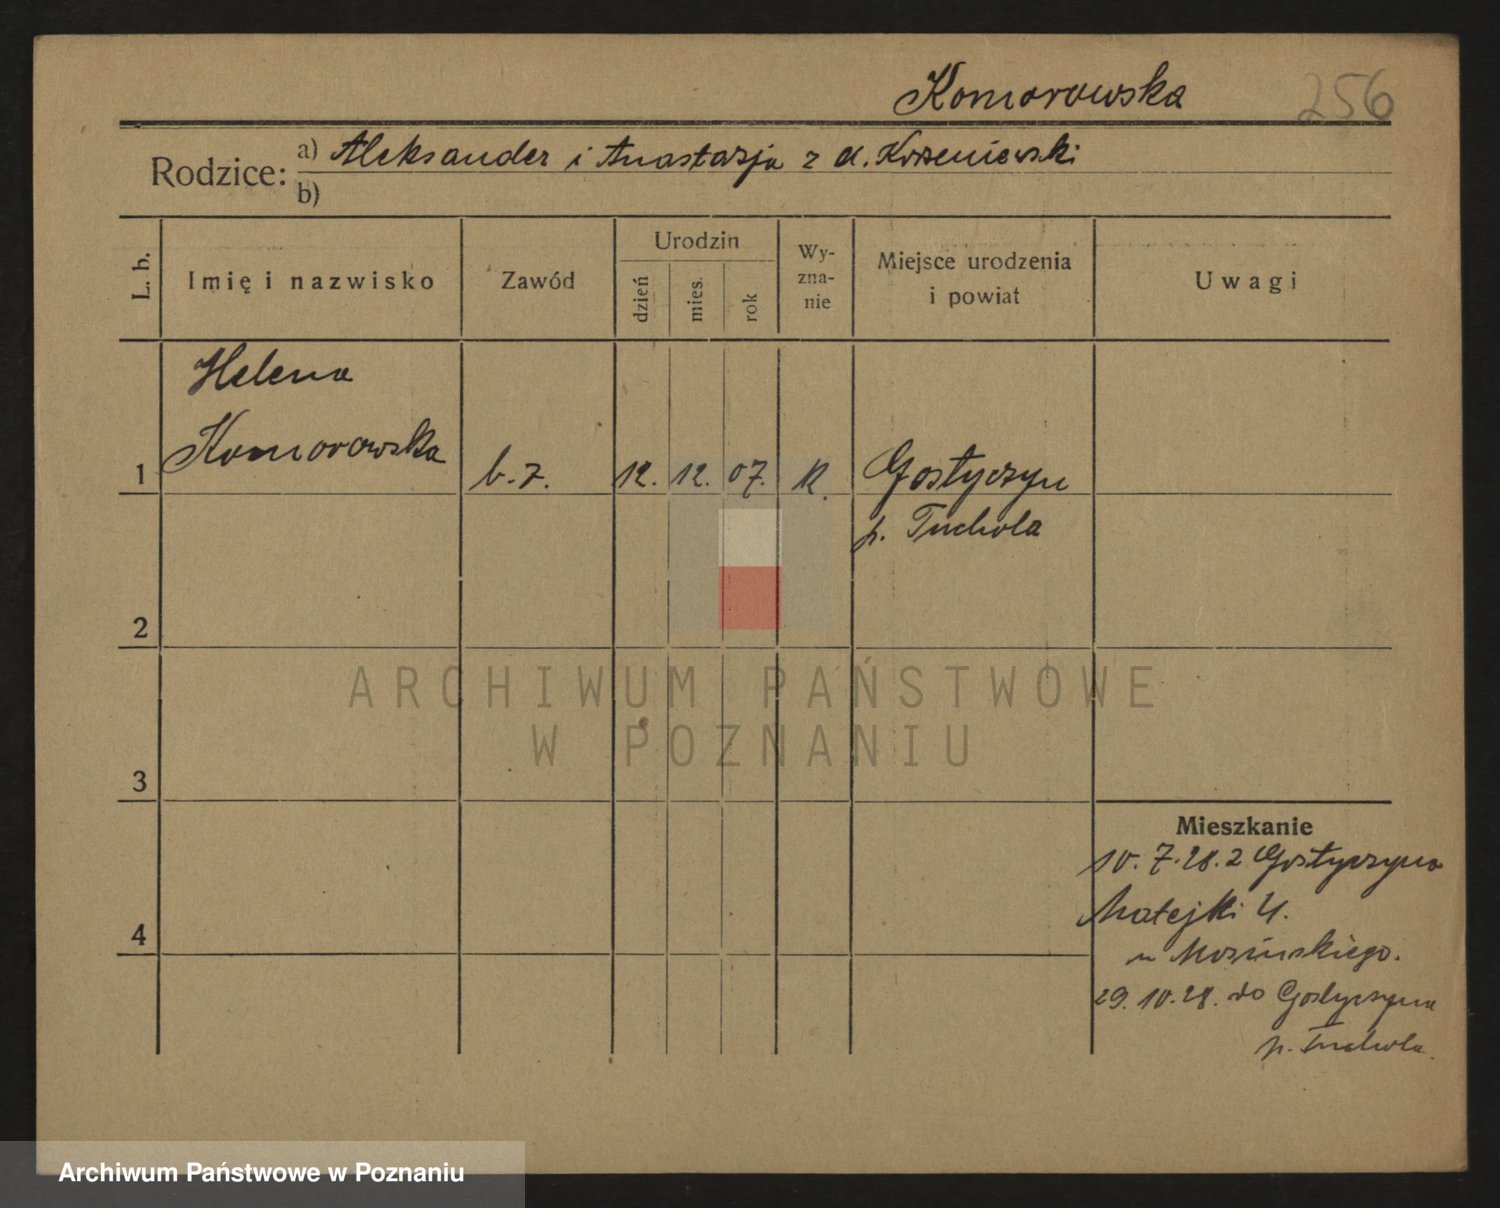 Komorowska
256
Rodzice: a) Aleksander i Anastazja z d. Korzeniewski
b)
L. b.
Imię i nazwisko
Zawód
Urodzin
dzień
mies.
rok
Wy-
zna-
nie
Miejsce urodzenia
i powiat
Uwagi
Helena
1 Komorowska b. z. 12. 12. 07. K. Gostyczyn
p. Tuchola
2
3
4
Mieszkanie
10. 7. 28. z Gostyczyna
Matejki 4.
u Mosińskiego.
29. 10. 28. do Gostyczyna
p. Tuchola.
ARCHIWUM PAŃSTWOWE
W POZNANIU
Archiwum Państwowe w Poznaniu